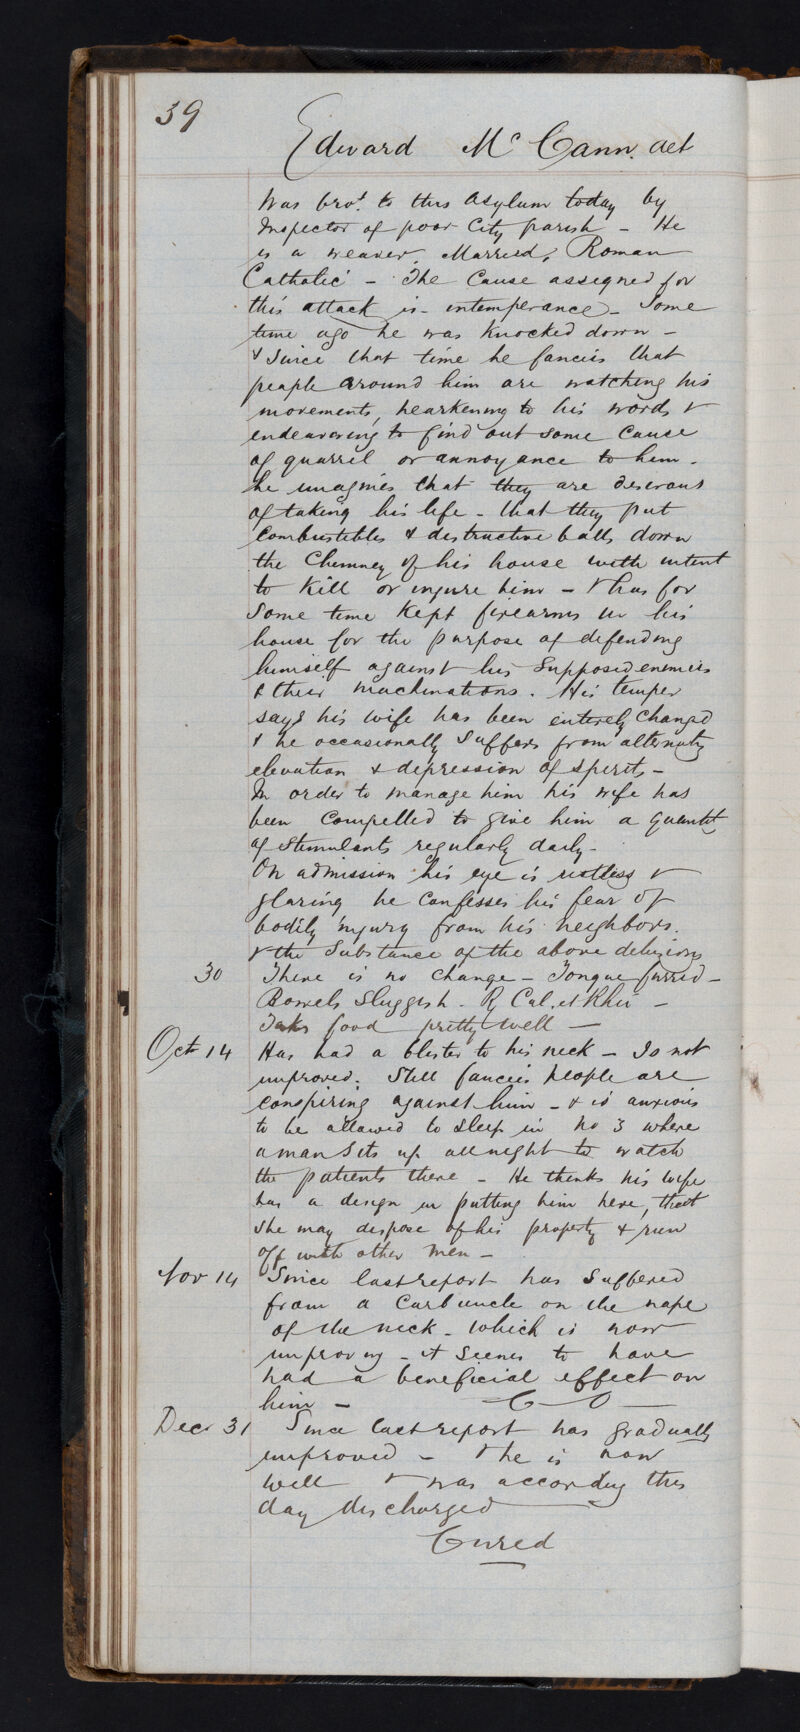 39
Edward McCann. aet
Was brot. to this Asylum today by
Inspector of poor City parish - He
is a weaver, Married, Roman
Catholic - The Cause assigned for
this attack is - intemperance - Some
time ago he was Knocked down -
& Since that time he fancies that
people around him are watching his
movements, hearkening to his words &
endeavoring to find out some Cause
of quarrel or annoyance to him -
he imagines that they are desirous
of taking his life - that they put
Combustibles & destructive balls down
the Chimney of his house with intent
to Kill or injure him - & has for
Some time Kept firearms in his
house for the purpose of defending
himself against his Supposed enemies
& their machinations. His temper
says his wife has been entirely Changed
& he occasionally Suffers from alternating
elevation & depression of Spirits -
In order to manage him his wife has
been Compelled to give him a quantity
of Stimulants regularly daily -
On admission his eye is restless &
glaring he Confesses his fear of
bodily injury from his neighbors.
& the Substance of the above delusions
30 There is no change - Tongue furred -
Bowels Sluggish. ℞ Cal. et Rhei -
Takes food pretty well -
Oct 14 Has had a blister to his neck - Is not
improved. Still fancies people are
Conspiring against him - & is anxious
to be allowed to Sleep in No 3 where
a man Sits up all night to watch
the patients there - He thinks his wife
has a design in putting him here, that
She may dispose of his property & run
off with other men -
Nov 14 Since last report has Suffered
from a Carbuncle on the nape
of the neck - which is now
improving - it Seems to have
had a beneficial effect on
him -
Decr 31 Since last report has gradually
improved - & he is now
well & was accordingly this
day discharged
Cured